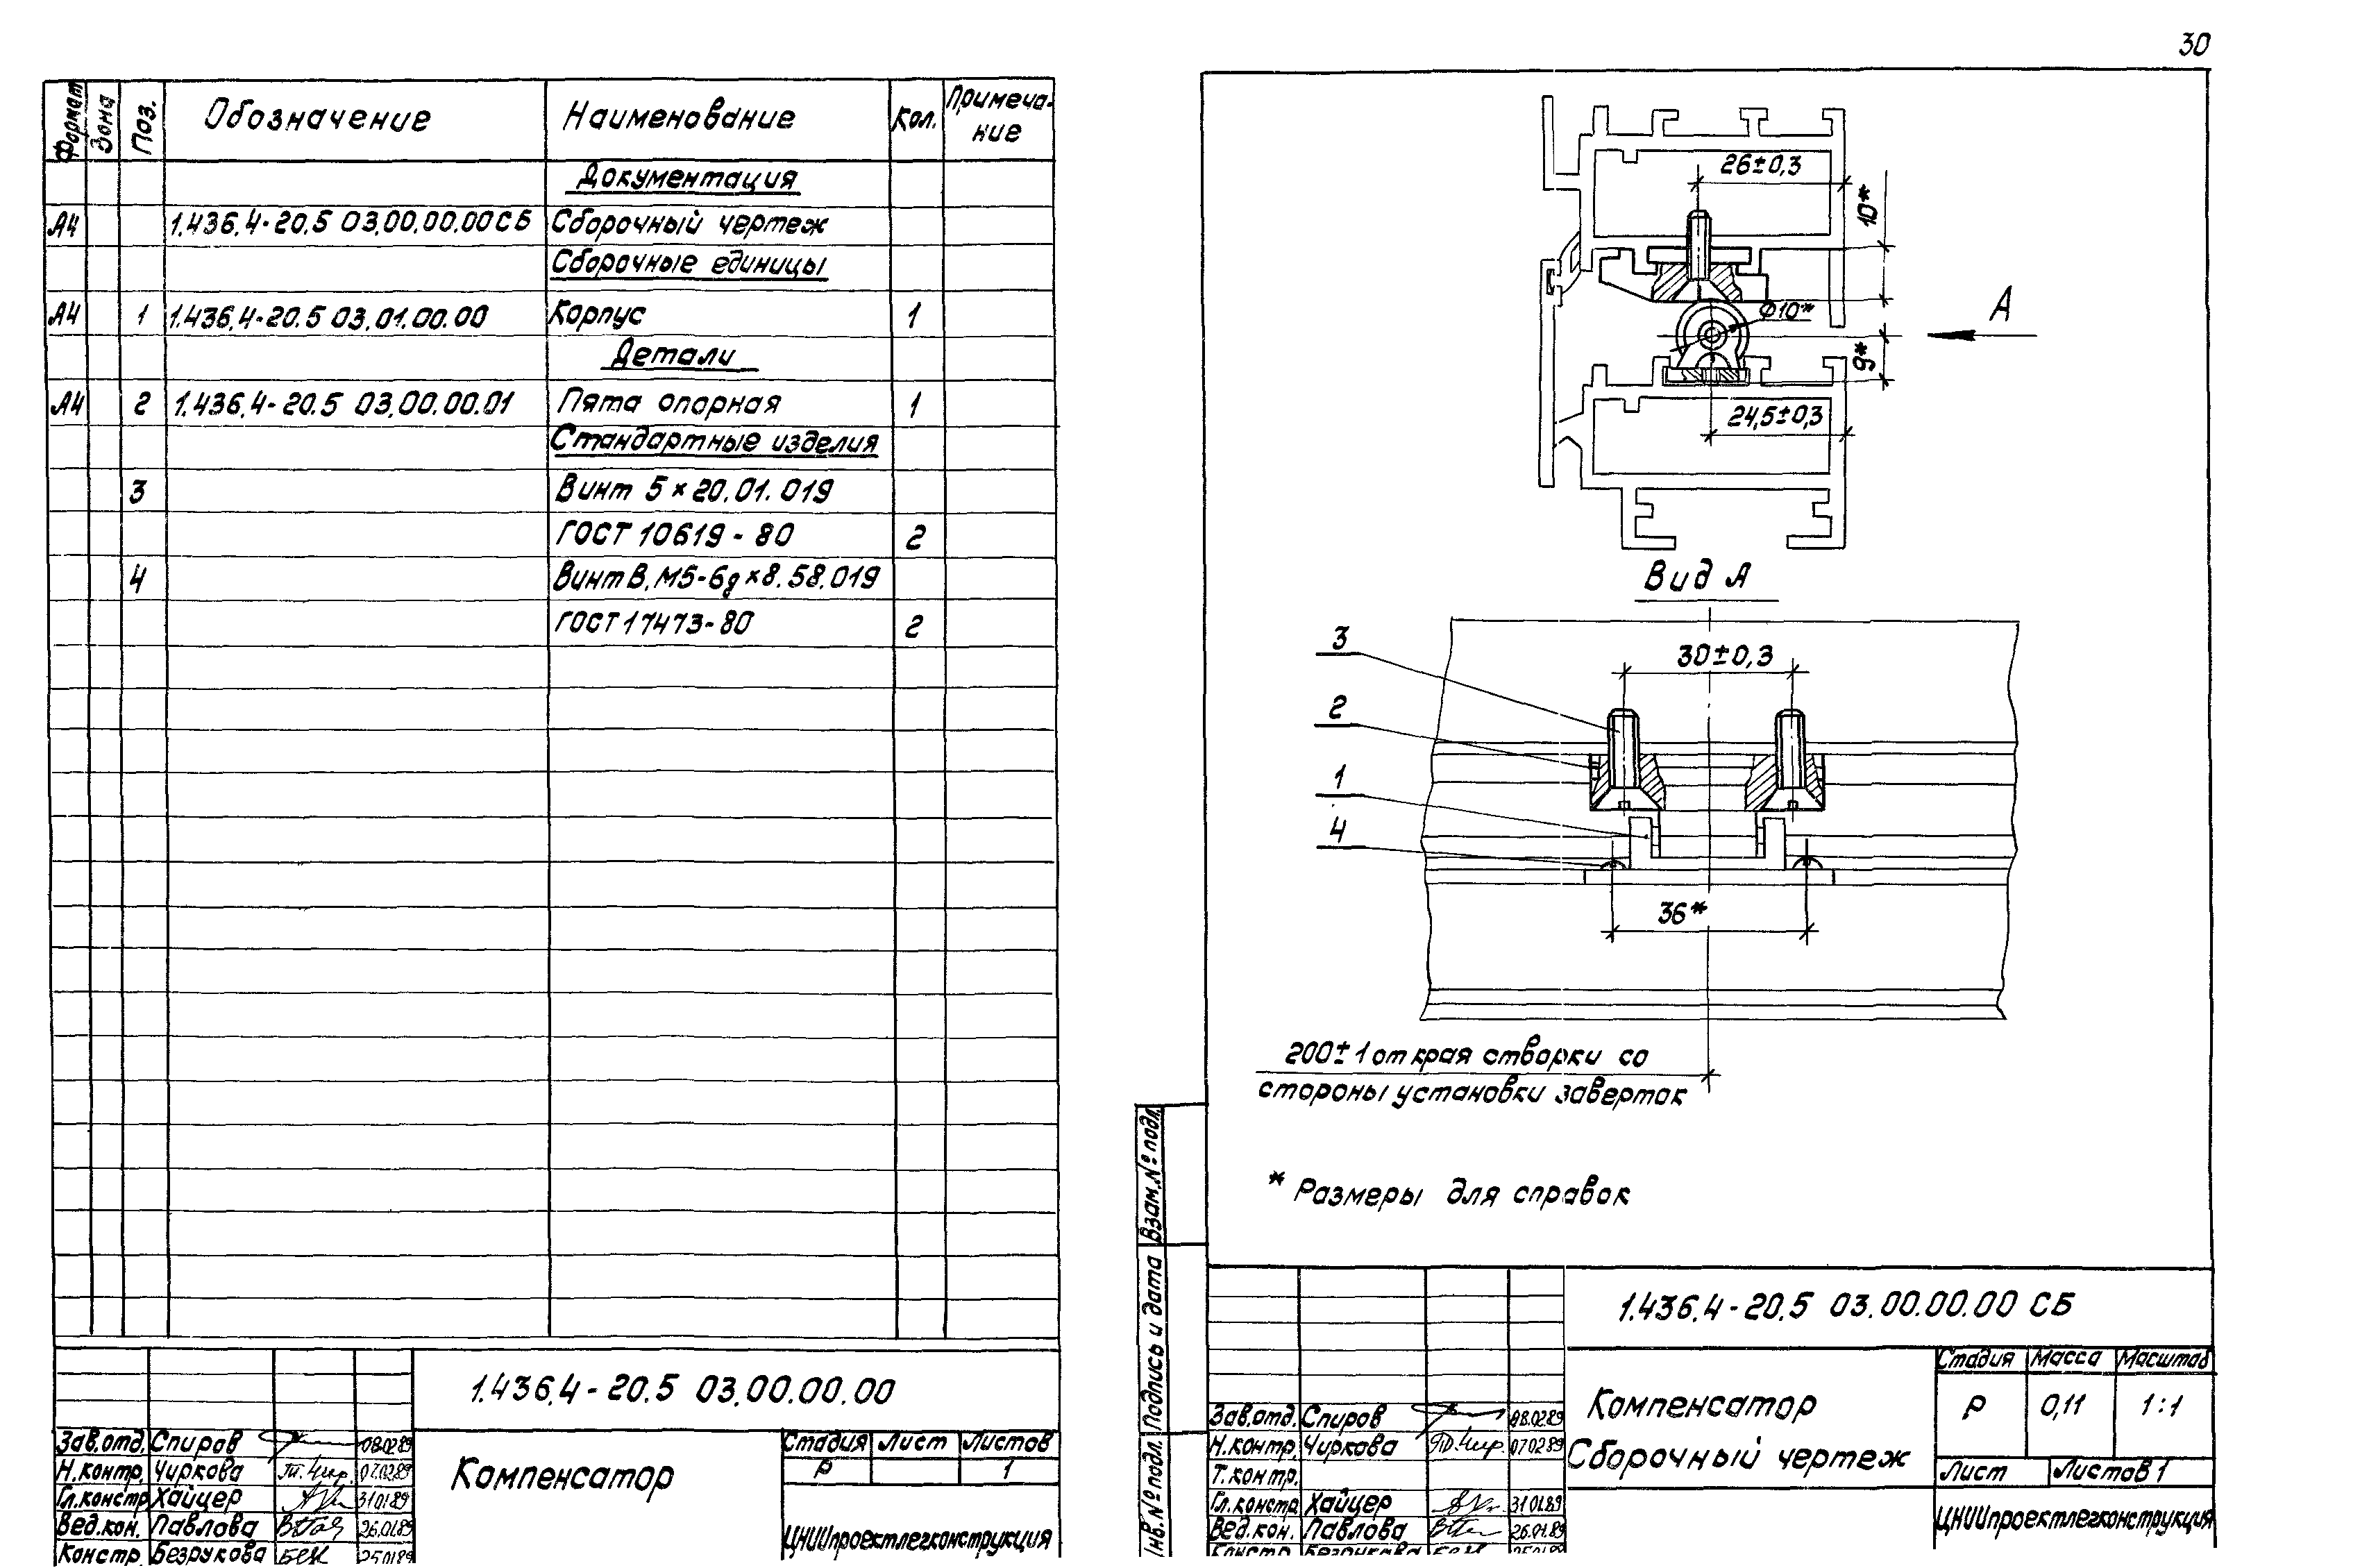 30
Формат Зона Поз. Обозначение Наименование Кол. Примеча-
ние
Документация
А4 1.436.4-20.5 03.00.00.00СБ Сборочный чертеж
Сборочные единицы
А4 1 1.436.4-20.5 03.01.00.00 Корпус 1
Детали
А4 2 1.436.4-20.5 03.00.00.01 Пята опорная 1
Стандартные изделия
3 Винт 5×20.01.019
ГОСТ 10619-80 2
4 Винт В.М5-6g×8.58.019
ГОСТ 17473-80 2
1.436.4-20.5 03.00.00.00
Зав.отд. Спиров 08.02.89
Н.контр. Чиркова 07.02.89
Гл.констр Хайцер 31.01.89
Вед.кон. Павлова 26.01.89
Констр. Безрукова 25.01.89
Компенсатор
Стадия Лист Листов
Р 1
ЦНИИпроектлегконструкция
26±0,3
10*
Ф10*
А
9*
24,5±0,3
Вид А
3
30±0,3
2
1
4
36*
200±1 от края створки со
стороны установки заверток
* Размеры для справок
Взам.№подл.
Подпись и дата
Инв.№подл.
1.436.4-20.5 03.00.00.00 СБ
Зав.отд. Спиров 08.02.89
Н.контр. Чиркова 07.02.89
Т.контр.
Гл.констр. Хайцер 31.01.89
Вед.кон. Павлова 26.01.89
Констр. Безрукова 25.01.89
Компенсатор
Сборочный чертеж
Стадия Масса Масштаб
Р 0,11 1:1
Лист Листов 1
ЦНИИпроектлегконструкция